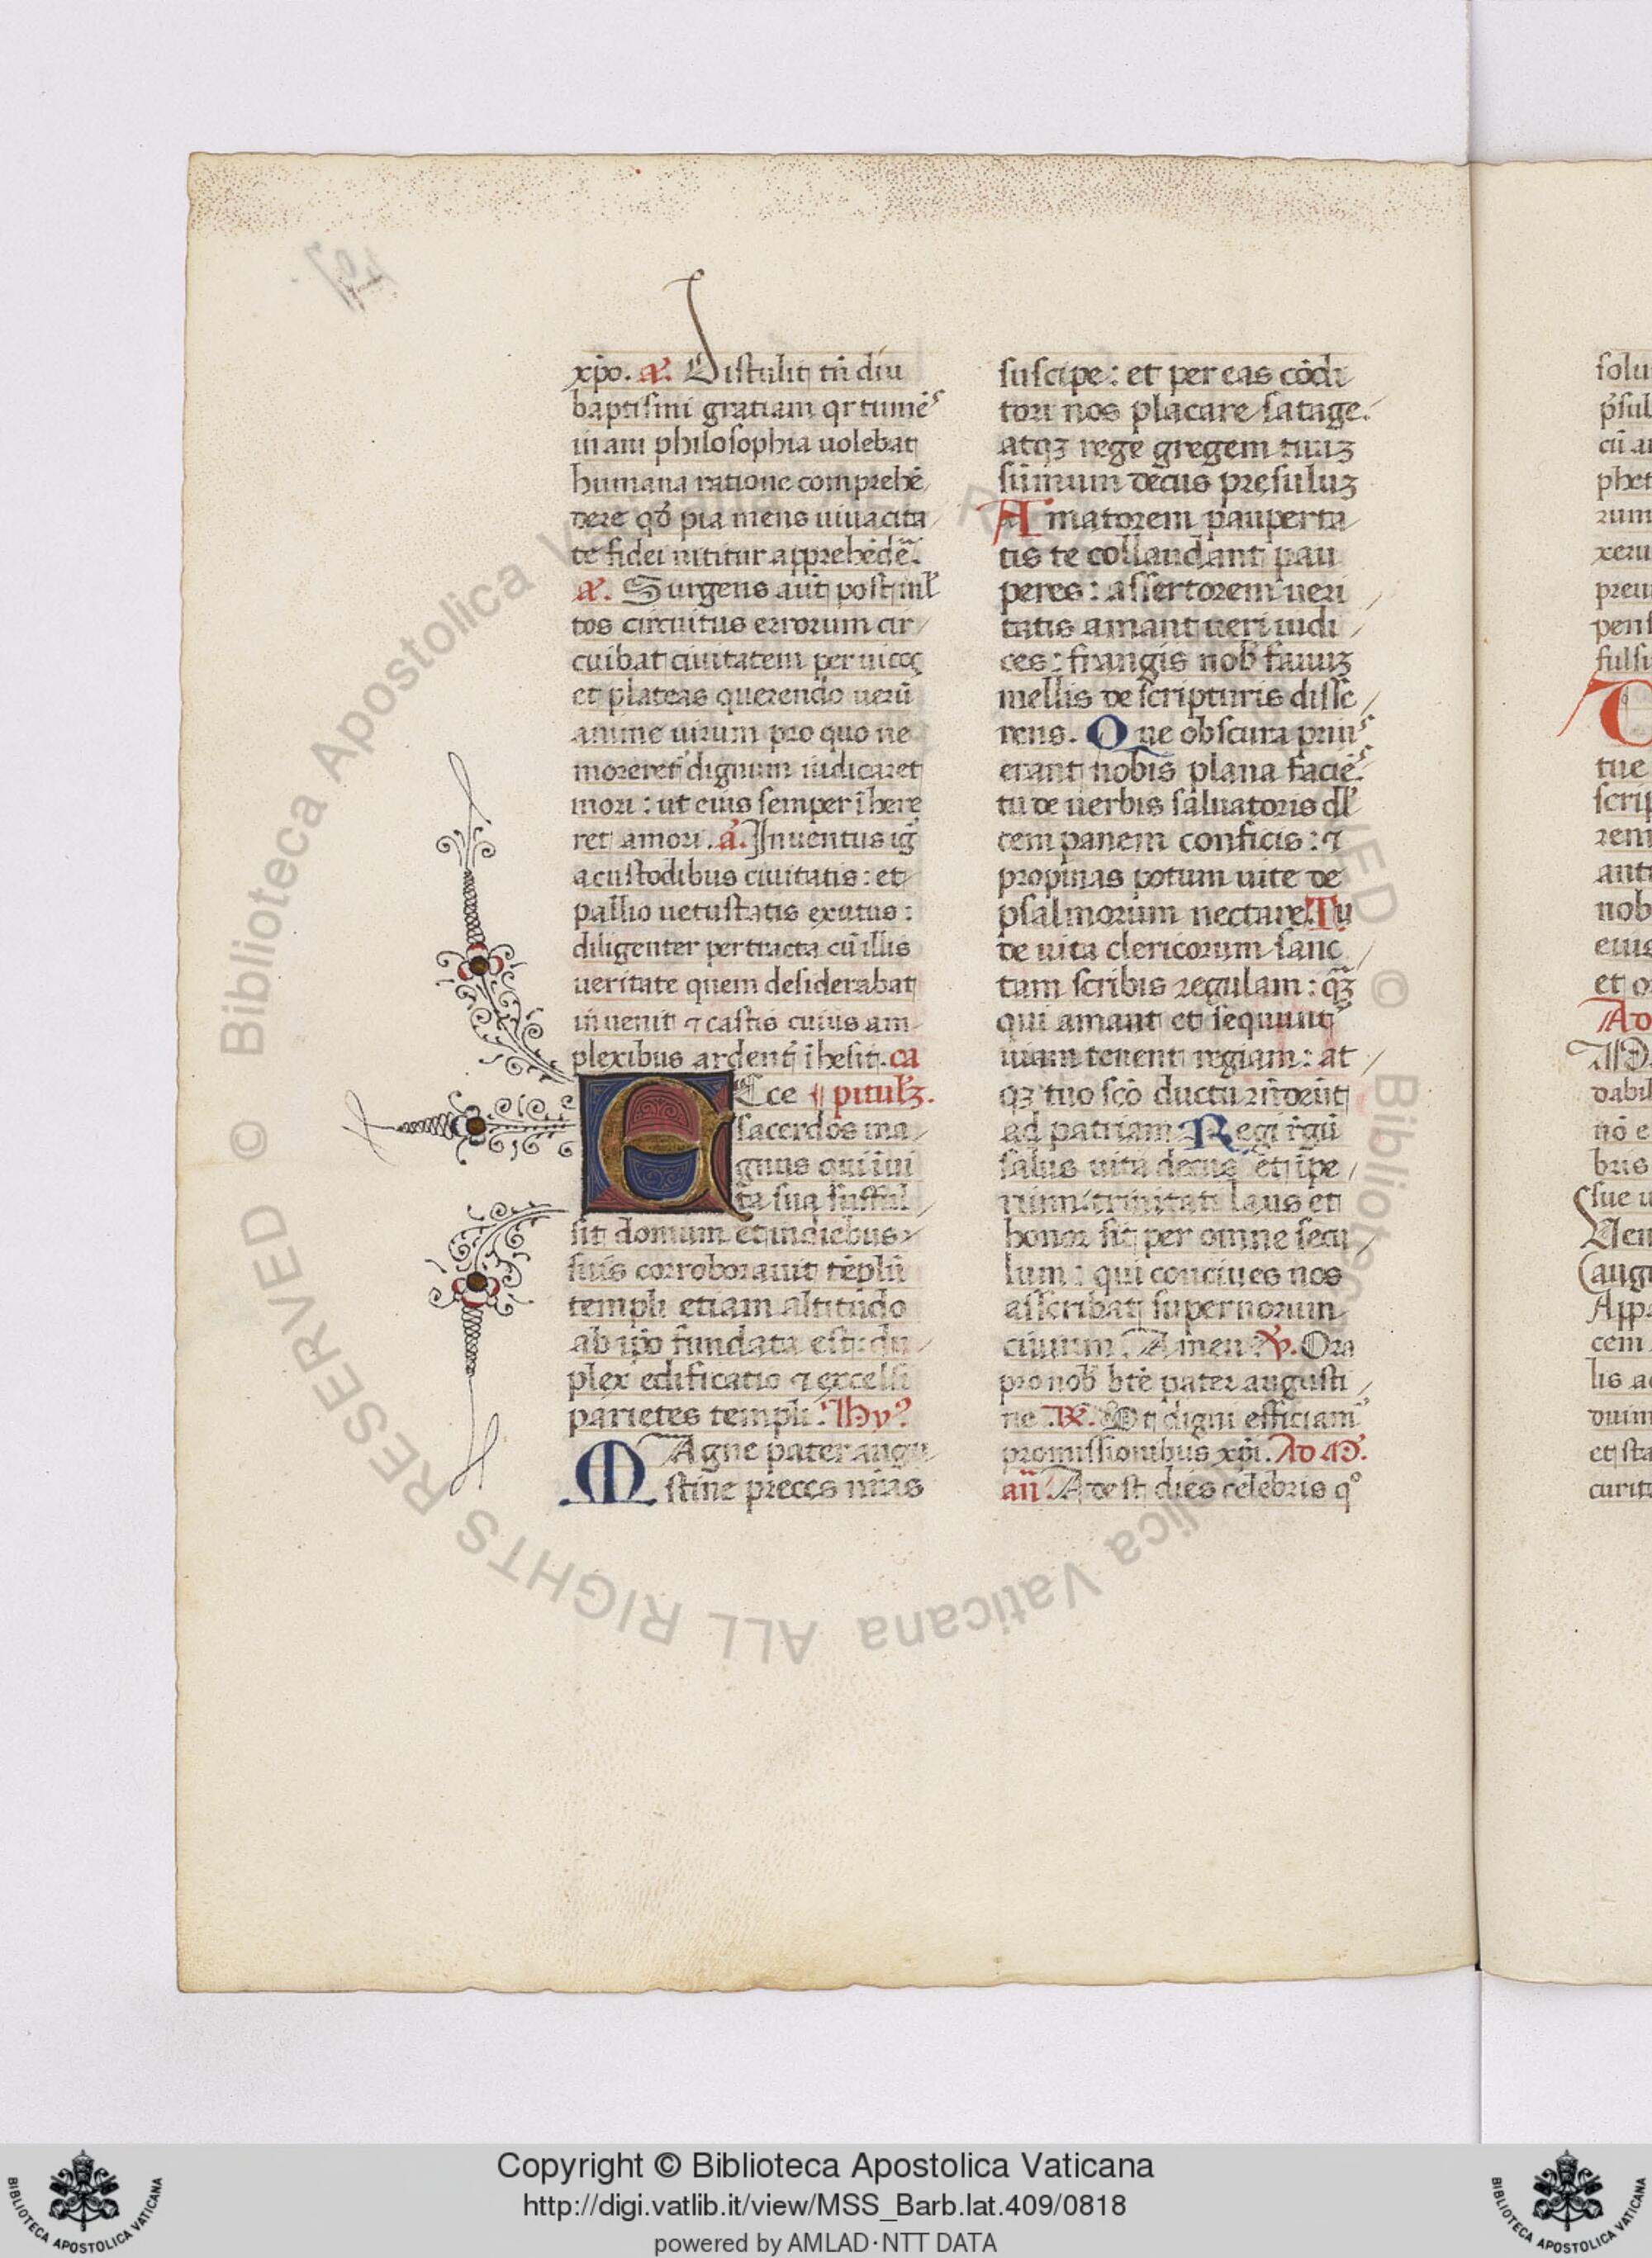 xp̄o. a᷎. Distulit tn̄ diu
baptismi gratiam qr tumēs
inani philosophia uolebat
humana ratione comprehē
dere qđ pia mens uiuacita
te fidei nititur apprehēdē.
a᷎. Surgens aūt post ml'
tos circuitus errorum cir
cuibat ciuitatem per uicoꝝ
et plateas querendo uerū
anime uirum pro quo ne
moreret᷑ dignum iudicaret
mori : ut eius semper īhere
ret amori. a᷎. Inuentus ig̃
a custodibus ciuitatis : et
pallio uetustatis exutus :
diligenter pertracta cū illis
ueritate quem desiderabat
inuenit ⁊ castis cuius am
plexibus ardent᷑ īhesit. ca
Ecce ¶ pitulꝫ.
sacerdos ma
gnus qui ī ui
ta sua sufful
sit domum et in diebus
suis corroborauit tēplū
templi etiam altitudo
ab ip̄o fundata est du
plex edificatio ⁊ excelsi
parietes templi. Hyꝰ
MAgne pater augu
stine preces nr̄as
suscipe : et per eas cōdi
tori nos placare satage.
atqꝫ rege gregem tuuꝫ
sūmum decus presuluꝫ
Amatorem pauperta
tis te collaudant pau
peres : assertorem ueri
tatis amant ueri iudi
ces : frangis nob̄ fauuꝫ
mellis de scripturis disse
rens. Que obscura prius
erant nobis plana faciēs
tu de uerbis saluatoris dl'
cem panem conficis : ⁊
propinas potum uite de
psalmorum nectare. Tu
de uita clericorum sanc
tam scribis regulam : qꝫ̄
qui amant et sequunt᷑
uiam tenent regiam : at
qꝫ tuo scō ductu
ad patriam. Regi r̄gū
salus uita decus et īpe
rium : trinitati laus et
honor sit per omne secu
lum : qui conciues nos
asscribat supernorum
ciuium. Amen. ꝟ. Ora
pro nob̄ bt̄e pater augusti
ne. ℟. Vt digni efficiam᷑
promissionibus xp̄i. Ad M̄.
an̄. Adest dies celebris qͦ
Copyright © Biblioteca Apostolica Vaticana
http://digi.vatlib.it/view/MSS_Barb.lat.409/0818
powered by AMLAD·NTT DATA